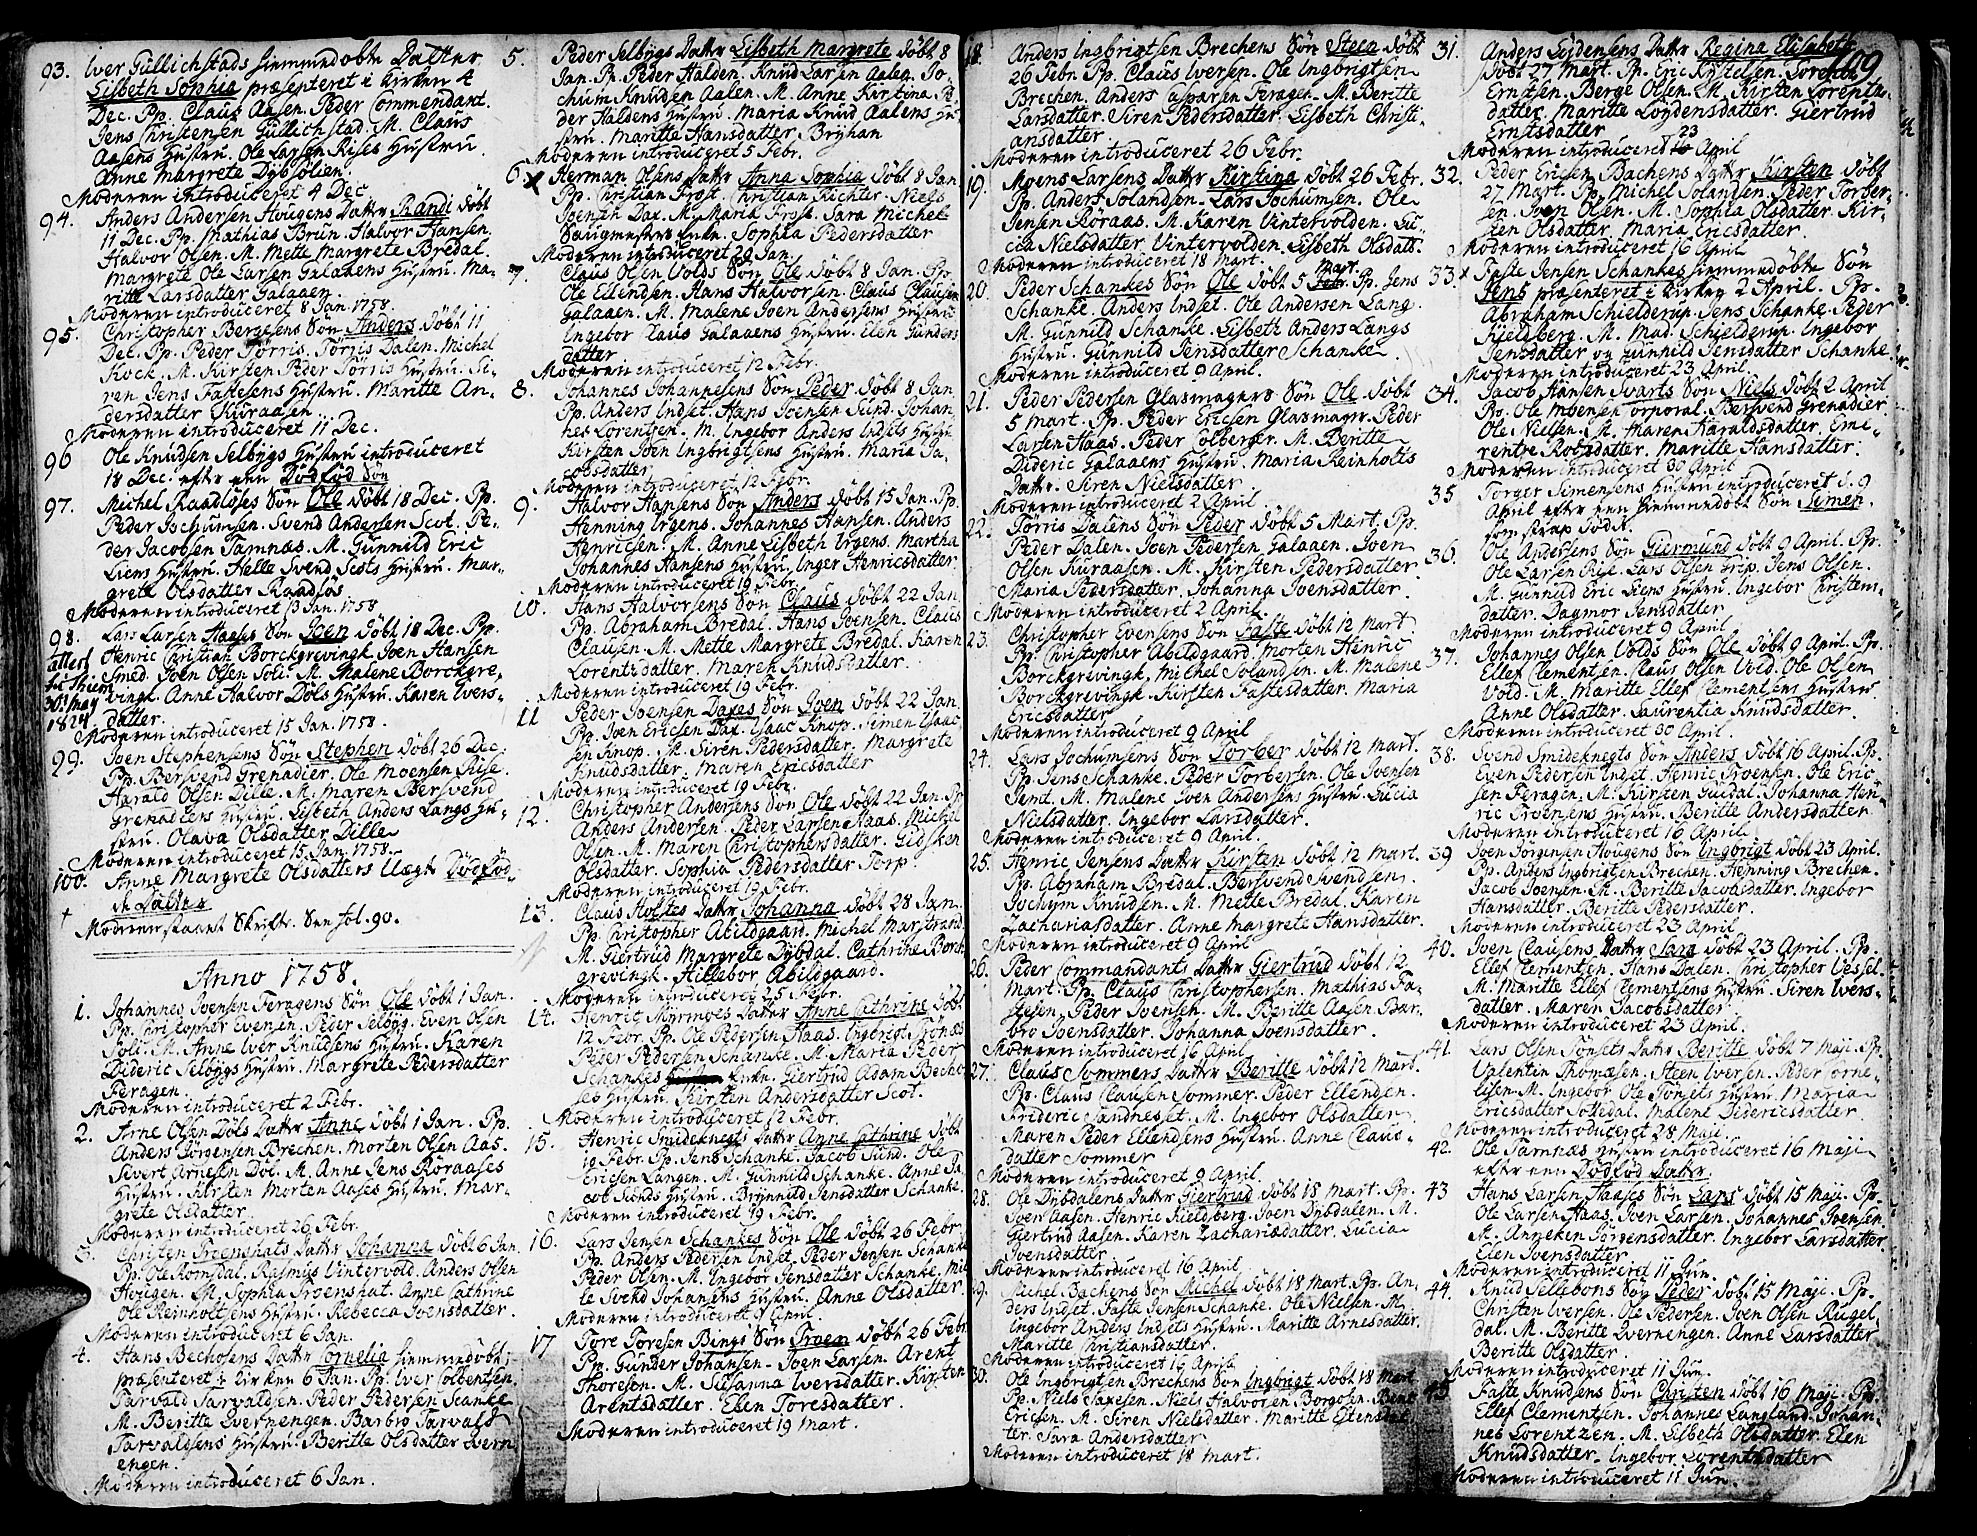 93. Iver Gullichstads hiemmedøbte Datter
Lisbeth Sophia præsenteret i kirken 4
Dec. Pp. Claus Aasen. Peder Commendant.
Jens Christensen Gullichstad. M. Claus
Aasens Hustru. Ole Larsen Rises Hustru.
Anne Margrete Dybsölien.
Moderen introduceret 4 Dec
94. Anders Andersen Hougens Datter Randi döbt
11 Dec. Pp. Mathias Brun. Halvor Hansen.
Halvor Olsen. M. Mette Margrete Bredal.
Margrete Ole Larsen Galaaens Hustru. Ma-
ritte Larsdatter Galaaen
Moderen introduceret 8 Jan. 1758.
95. Christopher Bergesens Sön Anders döbt 11
Dec. Pp. Peder Törris. Törris Dalen. Michel
Kock. M. Kirsten Peder Törris Hustru. Si-
ren Jens Fastesens Hustru. Maritte An-
dersdatter Kuraasen.
Moderen introduceret 11 Dec.
96 Ole Knudsen Selbygs Hustru introduceret
18 Dec. efter een Dödfød Sön
97. Michel Raadløses Sön Ole döbt 18 Dec. Pp.
Peder Jochumsen. Svend Andersen Scot. Pe-
der Jacobsen Tamnæs. M. Gunnild Eric
Liens Hustru. Helle Svend Scots Hustru. Mar-
grete Olsdatter Raadløs
Moderen introduceret Jan. 1758.
98. Lars Larsen Haases Sön Joen döbt 18 Dec. Pp.
Henric Christian Borckgrevingk. Joen Hansen
Smed. Joen Olsen Soli. M. Malene Borckgre-
vingk. Anne Halvor Döls Hustru. Karen Ivers-
datter.
attest
30 May
1824
Moderen introduceret 15 Jan. 1758.
99. Joen Stephensens Sön Stephen döbt 26 Dec.
Pp. Bersvend Grenadier. Ole Moensen Rise.
Harald Olsen Dille. M. Maren Bersvend
Grenadiers Hustru. Lisbeth Anders Langs Hu-
stru. Olava Olsdatter Dille
Moderen introduceret 15 Jan. 1758.
100. Anne Margrete Olsdatters Uægt Dödfød-
de Datter
Moderen staaet Skrifte. See fol. 90.
Anno 1758.
1. Johannes Joensen Feragens Sön Ole döbt 1 Jan.
Pp. Christopher Evensen. Peder Selbyg. Even Olsen
Soli. M. Anne Iver Knudsens Hustru. Karen
Dideric Selbygs Hustru. Margrete Pedersdatter
Feragen.
Moderen introduceret 2 Febr.
2. Arne Olsen Döls Datter Anne döbt 1 Jan. Pp.
Anders Jörgensen Brechen. Morten Olsen Aas.
Sivert Arnesen Döl. M. Anne Jens Röraases
Hustru. Kirsten Morten Aases Hustru. Mar-
grete Olsdatter.
Moderen introduceret 26 Febr.
3. Christen Troenshats Datter Johanna döbt 6 Jan.
Pp. Ole Romsdal. Rasmus Vintervold. Anders Olsen
Hougen. M. Sophia Troenshat. Anne Cathrine
Ole Reinholtsens Hustru. Rebecca Joensdatter.
Moderen introduceret 6 Jan.
4. Hans Bechosens Datter Cornelia hiemmedöbt,
præsenteret i kirken 6 Jan. Pp. Iver Colbentsen.
Tarvald Tarvaldsen. Peder Pedersen Scancke
M. Beritte Qvernengen. Barbro Tarvald
Tarvaldsens Hustru. Beritte Olsdatter Qvern
engen.
Moderen introduceret 6 Jan.
5. Peder Selbygs Datter Lisbeth Margrete döbt 8
Jan. Pp. Peder Halden. Knud Larsen Aalen. Jo-
chum Knudsen Aalen. M. Anne Kirstina Pe-
der Haldens Hustru. Maria Knud Aalens Hu-
stru. Maritte Hansdatter. Bryhan
Moderen introduceret 5 Febr.
6. Herman Olsens Datter Anna Sophia döbt 8 Jan
Pp. Christian Frost. Christian Richter. Niels
Joensen Dax. M. Maria Frost. Sara Michel
Saugmesters Enke. Sophia Pedersdatter
Moderen introduceret 29 Jan.
7. Claus Olsen Volds Sön Ole döbt 8 Jan. Pp.
Ole Ellendsen. Hans Halvorsen. Claus Clausen
Galaaen. M. Malene Joen Andersens Hustru
Ingebor Claus Galaaens Hustru. Elen Gunders
datter
Moderen introduceret 12 Febr.
8. Johannes Johannesens Sön Peder döbt 8 Jan
Pp. Anders Indset. Hans Joensen Sund. Johan-
nes Lorentzen. M. Ingebor Anders Indsets Hustru
Kirsten Joen Ingbrigtsens Hustru. Maria Ja-
cobsdatter
Moderen introduceret 12 Febr.
9. Halvor Hansens Sön Anders döbt 15 Jan. Pp.
Henning Irgens. Johannes Hansen. Anders
Henricsen. M. Anne Lisbeth Irgens. Martha
Johannes Hansens Hustru. Inger Henricsdatter.
Moderen introduceret 19 Febr.
10. Hans Halvorsens Sön Claus döbt 22 Jan
Pp. Abraham Bredal. Hans Joensen. Claus
Clausen. M. Mette Margrete Bredal. Karen
Lorentzdatter. Maren Knudsdatter.
Moderen introduceret 19 Febr.
11 Peder Joensen Daxes Sön Joen döbt 22 Jan
Pp. Joen Ericsen Dax. Isaac Knop. Simen Isaac
sen Knop. M. Siren Pedersdatter. Margrete
Knudsdatter. Maren Ericsdatter
Moderen introduceret 19 Febr.
12. Christopher Andersens Sön Ole döbt 22 Jan. Pp
Anders Andersen. Peder Larsen Haas. Michel
Olsen. M. Maren Christophersdatter. Gidsken
Olsdatter. Sophia Pedersdatter Torp
Moderen introduceret 19 Febr.
13. Claus Holstes Datter Johanna döbt 28 Jan.
Pp. Christopher Abildgaard. Michel Marstrand.
M. Giertrud Margrete Dybdal. Cathrine Borck
grevingk. Hillebor Abildgaard.
Moderen introduceret 25 Febr.
14. Henric Myrmoes Datter Anne Cathrine döbt
12 Febr. Pp. Ole Pedersen Haas. Ingbrigt Grönaas
Peder Pedersen Schancke. M. Marta Peder
Schankes Enke. Giertrud Adam Becho
ses Hustru. Kirsten Andersdatter Scot.
Moderen introduceret 12 Febr.
15. Henric Smideknegts Datter Anne Cathrine döbt
19 Febr. Pp. Jens Schanke. Jacob Sund. Ole
Ericsen Langen. M. Gunnild Schanke. Anne Ja-
cob Sunds Hustru. Brynnild Jensdatter Schanke.
Moderen introduceret 19 Febr.
16. Lars Jensen Schankes Sön Ole döbt 26 Febr
Pp. Anders Pedersen Indset. Peder Jensen Schanke
Peder Olsen. M. Ingebor Jensdatter Schanke.
le Svend Johansens Hustru. Anne Olsdatter.
Moderen introduceret 9 April
17 Tore Toresen Bings Sön Troen döbt 26 Febr.
Pp. Gunder Johansen. Joen Larsen. Arent
Thoresen. M. Susanna Iversdatter. Kirsten
Arentsdatter. Elen Toresdatter.
Moderen introduceret 19 Mart
18. Anders Ingbrigtsen Brechens Sön Steen döbt
26 Febr. Pp. Claus Iversen. Ole Ingbrigtsen
Brechen. Anders Casparsen Feragen. M. Beritte
Larsdatter. Siren Pedersdatter. Lisbeth Christi-
ansdatter
Moderen introduceret 26 Febr.
19. Moens Larsens Datter Kirstina döbt 26 Febr.
Pp. Anders Solandsen. Lars Jochumsen. Ole
Jensen Röraas. M. Karen Vintervolden. Lu-
cia Nielsdatter Vintervolden. Lisbeth Olsdatt.
Moderen introduceret 18 Mart.
20. Peder Schankes Sön Ole döbt 5 Mart. Pp. Jens
Schanke. Anders Indset. Ole Andersen Lang.
M. Gunnild Schanke. Lisbeth Anders Langs
Hustru. Gunnild Jensdatter Schanke
Moderen introduceret 9 April.
21. Peder Pedersen Glasmagers Sön Ole döbt
5 Mart. Pp. Peder Ericsen Glasmagr. Peder
Larsen Haas. Peder Colberger. M. Beritte
Dideric Galaaens Hustru. Maria Reinholts
Datter. Siren Nielsdatter.
Moderen introduceret 2 April
22. Törris Dalens Sön Peder döbt 5 Mart. Pp.
Peder Dalen. Joen Pedersen Galaaen. Joen
Olsen Kuraasen. M. Kirsten Pedersdatter
Maria Pedersdatter. Johanna Joensdatter.
Moderen introduceret 2 April.
23. Christopher Evensens Sön Faste döbt 12 Mart
Pp. Christopher Abildgaard. Morten Henric
Borckgrevingk. Michel Solandsen. M. Malene
Borckgrevingk. Kirsten Fastesdatter. Maria
Ericsdatter
Moderen introduceret 9 April
24. Lars Jochumsens Sön Torber döbt 12 Mart.
Pp. Jens Schanke. Peder Torbersen. Ole Joensen
Jemt. M. Malene Joen Andersens Hustru. Lucia
Nielsdatter. Ingebor Larsdatter.
Moderen introduceret 9 April.
25. Henric Jensens Datter Kirsten döbt 12 Mart.
Pp. Abraham Bredal. Bersvend Svendsen.
Jochum Knudsen. M. Mette Bredal. Karen
Zachariasdatter. Anne Margrete Hansdatter.
Moderen introduceret 9 April
26. Peder Commandants Datter Giertrud döbt 12
Mart. Pp. Claus Christophersen. Mathias Fa-
stesen. Peder Joensen. M. Beritte Aasen. Bar-
bro Joensdatter. Johanna Joensdatter.
Moderen introduceret 16 April
27. Claus Sommers Datter Beritte döbt 12 Mart.
Pp. Claus Clausen Sommer. Peder Ellendsen.
Frideric Sandnesset. M. Ingebor Olsdatter
Maren Peder Ellendsens Hustru. Anne Claus-
datter Sommer
Moderen introduceret 9 April
28. Ole Dybdalens Datter Giertrud döbt 18 Mart. Pp.
Joen Aasen. Henric Kieldsberg. Joen Dybdalen. M.
Giertrud Aasen. Karen Zachariædatter. Lucia
Joensdatter
Moderen introduceret 16 April
29. Michel Bachens Sön Michel döbt 18 Mart. Pp. An-
ders Indset. Faste Jensen Schanke. Ole Nielsen. M.
Ingebor Anders Indsets Hustru. Maritte Arnesdatter.
Maritte Christiansdatter.
Moderen introduceret 16 April
30. Ole Ingbrigtsen Brechens Sön Ingbrigt döbt 18 Mart
Pp. Niels Saxesen. Niels Halvorsen Borgos. Bent
Ericsen. M. Siren Nielsdatter. Maritte Estensdat
ter. Sara Andersdatter
Moderen introduceret 18 Mart.
109
31. Anders Löidensens Datter Regina Elisabeth
döbt 27 Mart. Pp. Eric Kystelsen. Lorentz
Erntsen. Berge Olsen. M. Kirsten Lorentz-
datter. Maritte Löydensdatter. Giertrud
Ernstsdatter
Moderen introduceret 23 April
32. Peder Ericsen Bachens Datter Kirsten döbt
27 Mart. Pp. Michel Solandsen. Peder Torber-
sen. Iven Olsen. M. Sophia Olsdatter. Kir-
sten Olsdatter. Maria Ericsdatter.
Moderen introduceret 16 April
33. Faste Jensen Schankes hiemmedöbte Sön
Jens præsenteret i kirken 2 April. Pp.
Abraham Schielderup. Jens Schanke. Peder
Kieldberg. M. Mad. Schielderup. Ingebor
Jensdatter og Gunhild Jensdatter Schanke.
Moderen introduceret 23 April.
34. Jacob Hansen Svarts Sön Niels döbt 2 April
Pp. Ole Moensen Corporal. Bersvend Grenadier
Ole Nielsen. M. Maren Haraldsdatter. Emi-
rentze Roesdatter. Maritte Hansdatter.
Moderen introduceret 30 April
35 Torger Simensens Hustru introduceret d. 9
April efter een hiemmedöbt Sön Simen,
som strax döde.
36. Ole Andersens Sön Giermund döbt 9 April. Pp.
Ole Larsen Rise. Lars Olsen Grip. Jens Olsen.
M. Gunnild Eric Liens Hustru. Ingebor Christens-
datter. Dagmor Jansdatter
Moderen introduceret 9 April
37. Johannes Olsen Volds Sön Ole döbt 9 April. Pp.
Ellef Clementsen. Claus Olsen Vold. Ole Olsen
Vold. M. Maritte Ellef Clementsens Hustru
Anne Olsdatter. Laurentia Knudsdatter.
Moderen introduceret 30 April.
38. Svend Smideknegts Sön Anders döbt 16 April. Pp.
Even Pedersen Indset. Henric Troensen. Ole Eric-
sen Feragen. M. Kirsten Guldal. Johanna Hen-
ric Troensens Hustru. Beritte Andersdatter
Moderen introduceret 16 April
39 Joen Jörgensen Hougens Sön Ingbrigt döbt 23 April.
Pp. Anders Ingbrigtsen Brechen. Henning Brechen.
Jacob Joensen. M. Beritte Jacobsdatter. Ingebor
Hansdatter. Beritte Pedersdatter.
Moderen introduceret 23 April
40. Iven Clausens Datter Sara döbt 23 April. Pp.
Ellef Clementsen. Hans Dalen. Christopher Vessel.
M. Maritte Ellef Clementsens Hustru. Siren Ivers-
datter. Maren Jacobsdatter
Moderen introduceret 23 April.
41. Lars Olsen Tönsets Datter Beritte döbt 7 Maji. Pp.
Valentin Thomæsen. Steen Iversen. Peder Corne-
lisen. M. Ingebor Ole Tönsets Hustru. Maria
Ericsdatter Sottedal. Malene Didericsdatter
Moderen introduceret 28 Maji.
42. Ole Tamnæs Hustru introduceret 16 Maji
efter een Dödfød Datter.
43 Hans Larsen Haases Sön Lars döbt 15 Maji. Pp.
Ole Larsen Haas. Joen Larsen. Johannes Joensen.
M. Anneken Jörgensdatter. Ingebor Larsdatter
Elen Joensdatter
Moderen introduceret 11 Jun.
44. Knud Sellebons Sön Peder döbt 15 Maji. Pp.
Christen Iversen. Ole Pedersen. Joen Olsen Rugel-
dal. M. Beritte Qvernengen. Anne Larsdatter
Beritte Olsdatter.
Moderen introduceret 11 Jun.
45. Faste Knudsens Sön Christen döbt 16 Maji. Pp.
Ellef Clementsen. Johannes Langland. Johan-
nes Lorentzen. M. Lisbeth Olsdatter. Elen
Knudsdatter. Ingebor Lorentzdatter
Moderen introduceret 11 Jun.